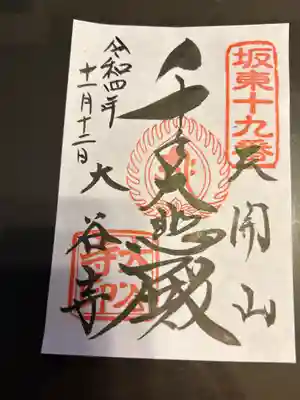 坂東十九番
天開山
千手大悲殿
大谷寺
令和四年
十一月十二日